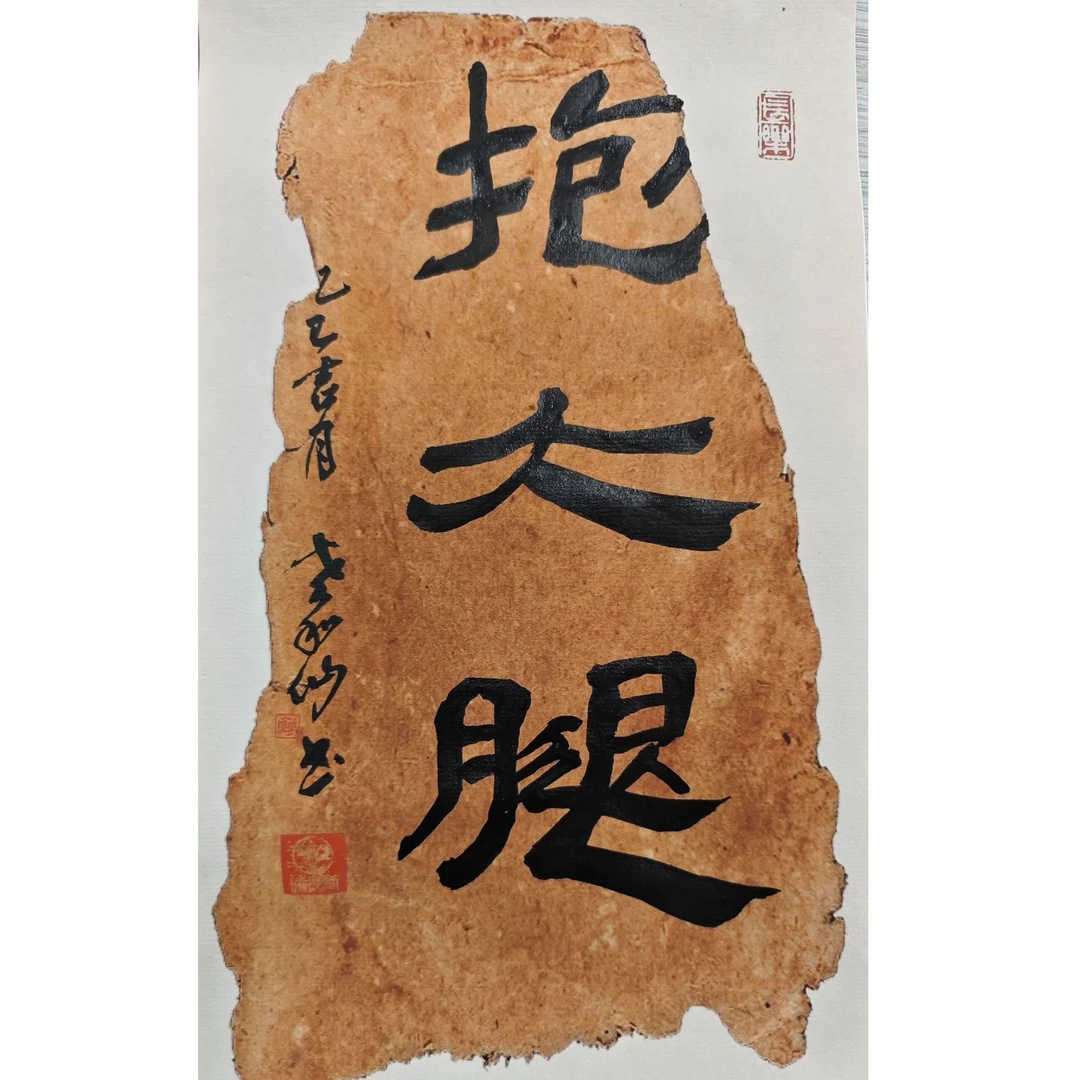 長樂
抱大腿
乙巳吉月 书